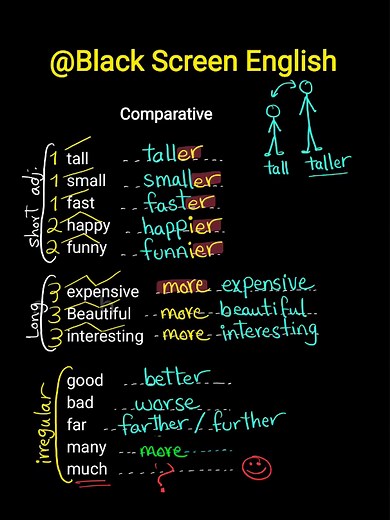 @Black Screen English
Comparative
tall taller
short adj.
1 tall taller
1 small smaller
1 fast faster
2 happy happier
2 funny funnier
Long
3 expensive more expensive
3 Beautiful more beautiful
3 interesting more interesting
irregular
good better
bad worse
far farther / further
many more
much ?